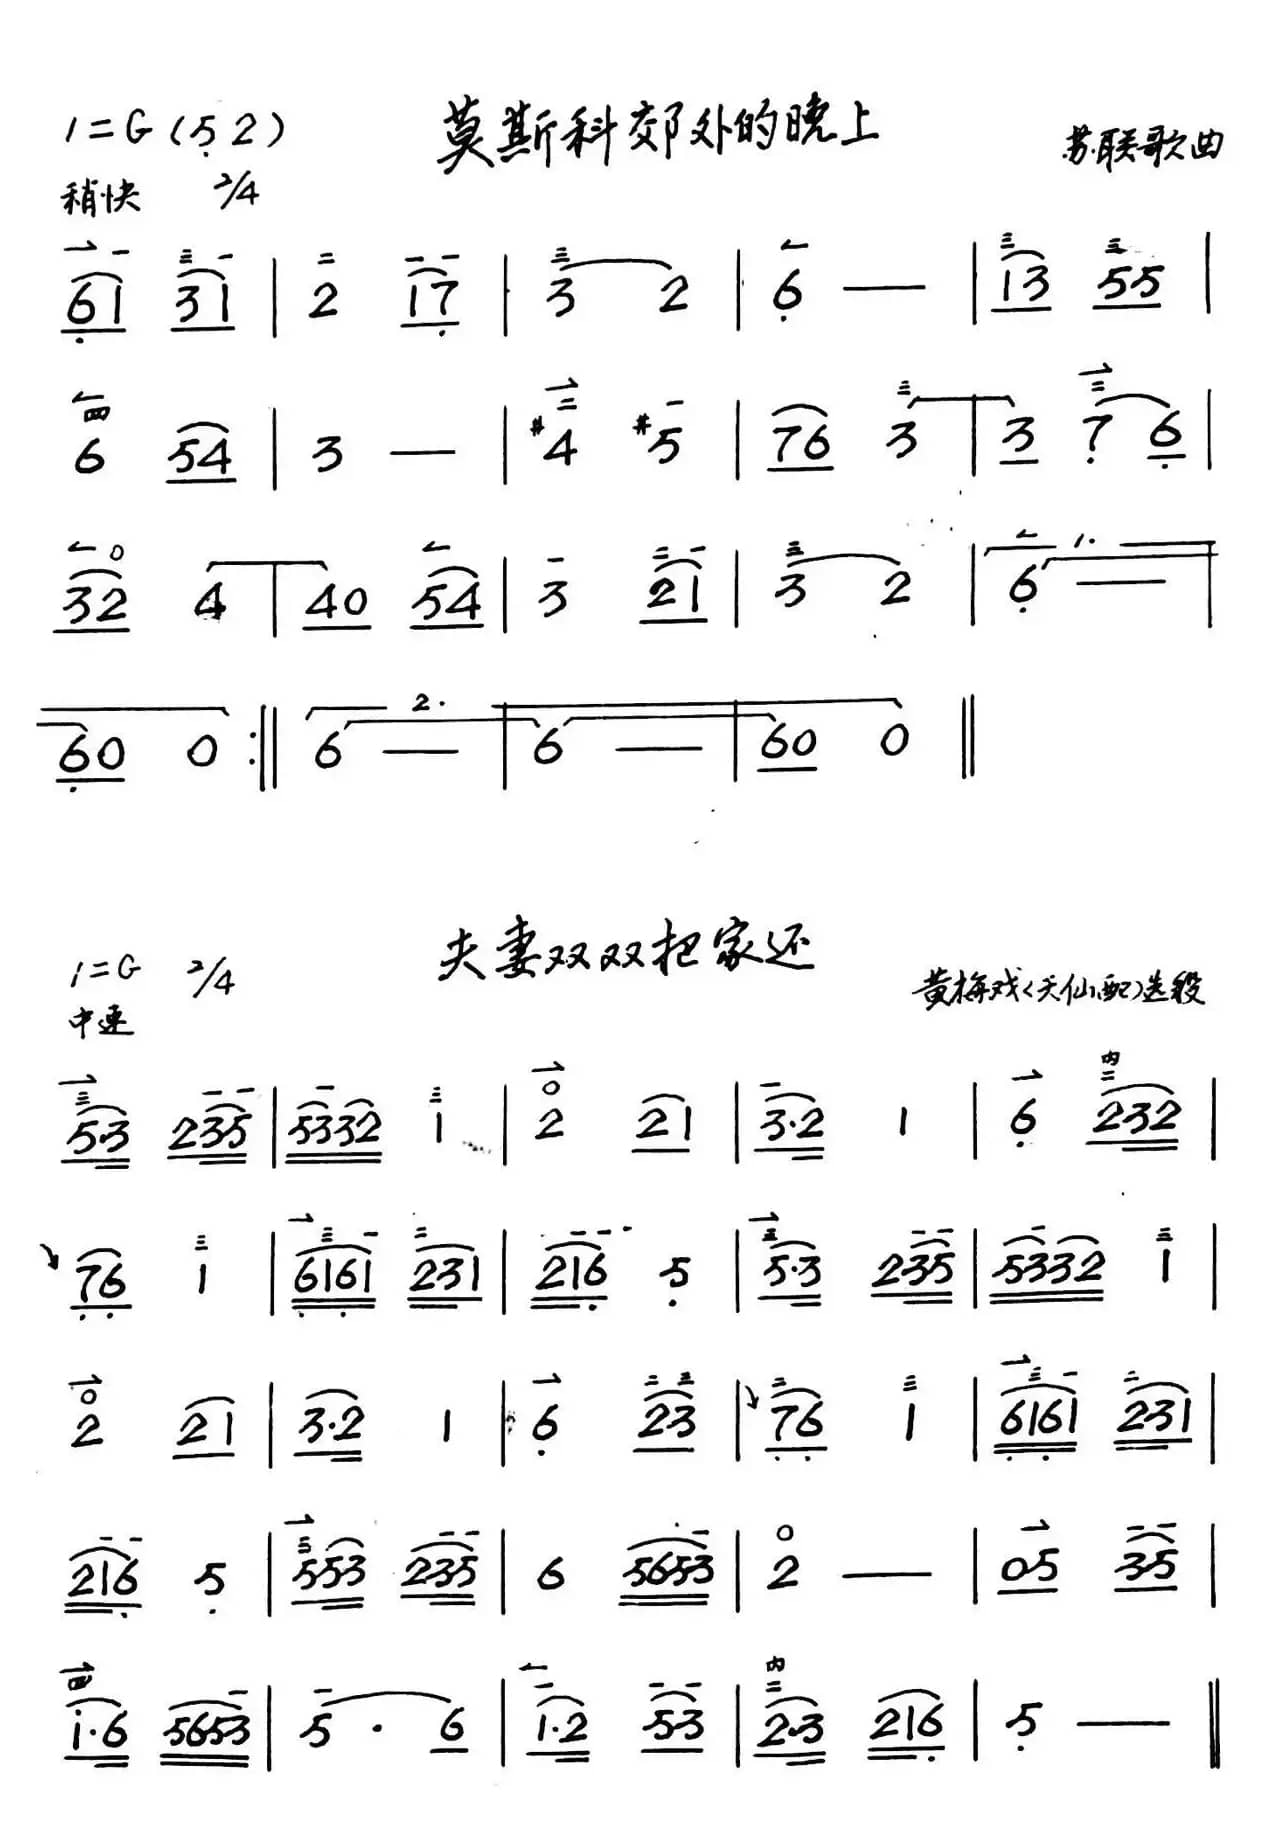 莫斯科郊外的晚上
1=G(5̣ 2) 苏联歌曲
稍快 2/4
6̣1 31 | 2 17̣ | 3 2 | 6̣ — | 13 55 |
6 54 | 3 — | #4 #5 | 76 3 | 3 7̣ 6̣ |
32 4 | 40 54 | 3 21 | 3 2 | 6̣ — |
6̣0 0 :‖ 6 — | 6 — | 60 0 ‖
夫妻双双把家还
1=G 2/4 黄梅戏<天仙配>选段
中速
5·3 235 | 5332 1 | 2 21 | 3·2 1 | 6̣ 232 |
7̣6̣ 1 | 6̣16̣1 231 | 216̣ 5̣ | 5·3 235 | 5332 1 |
2 21 | 3·2 1 | 6̣ 23 | 7̣6̣ 1 | 6̣16̣1 231 |
216̣ 5̣ | 553 235 | 6 5653 | 2 — | 05 35 |
i·6 5653 | 5 · 6 | 1·2 53 | 2·3 216̣ | 5̣ — ‖